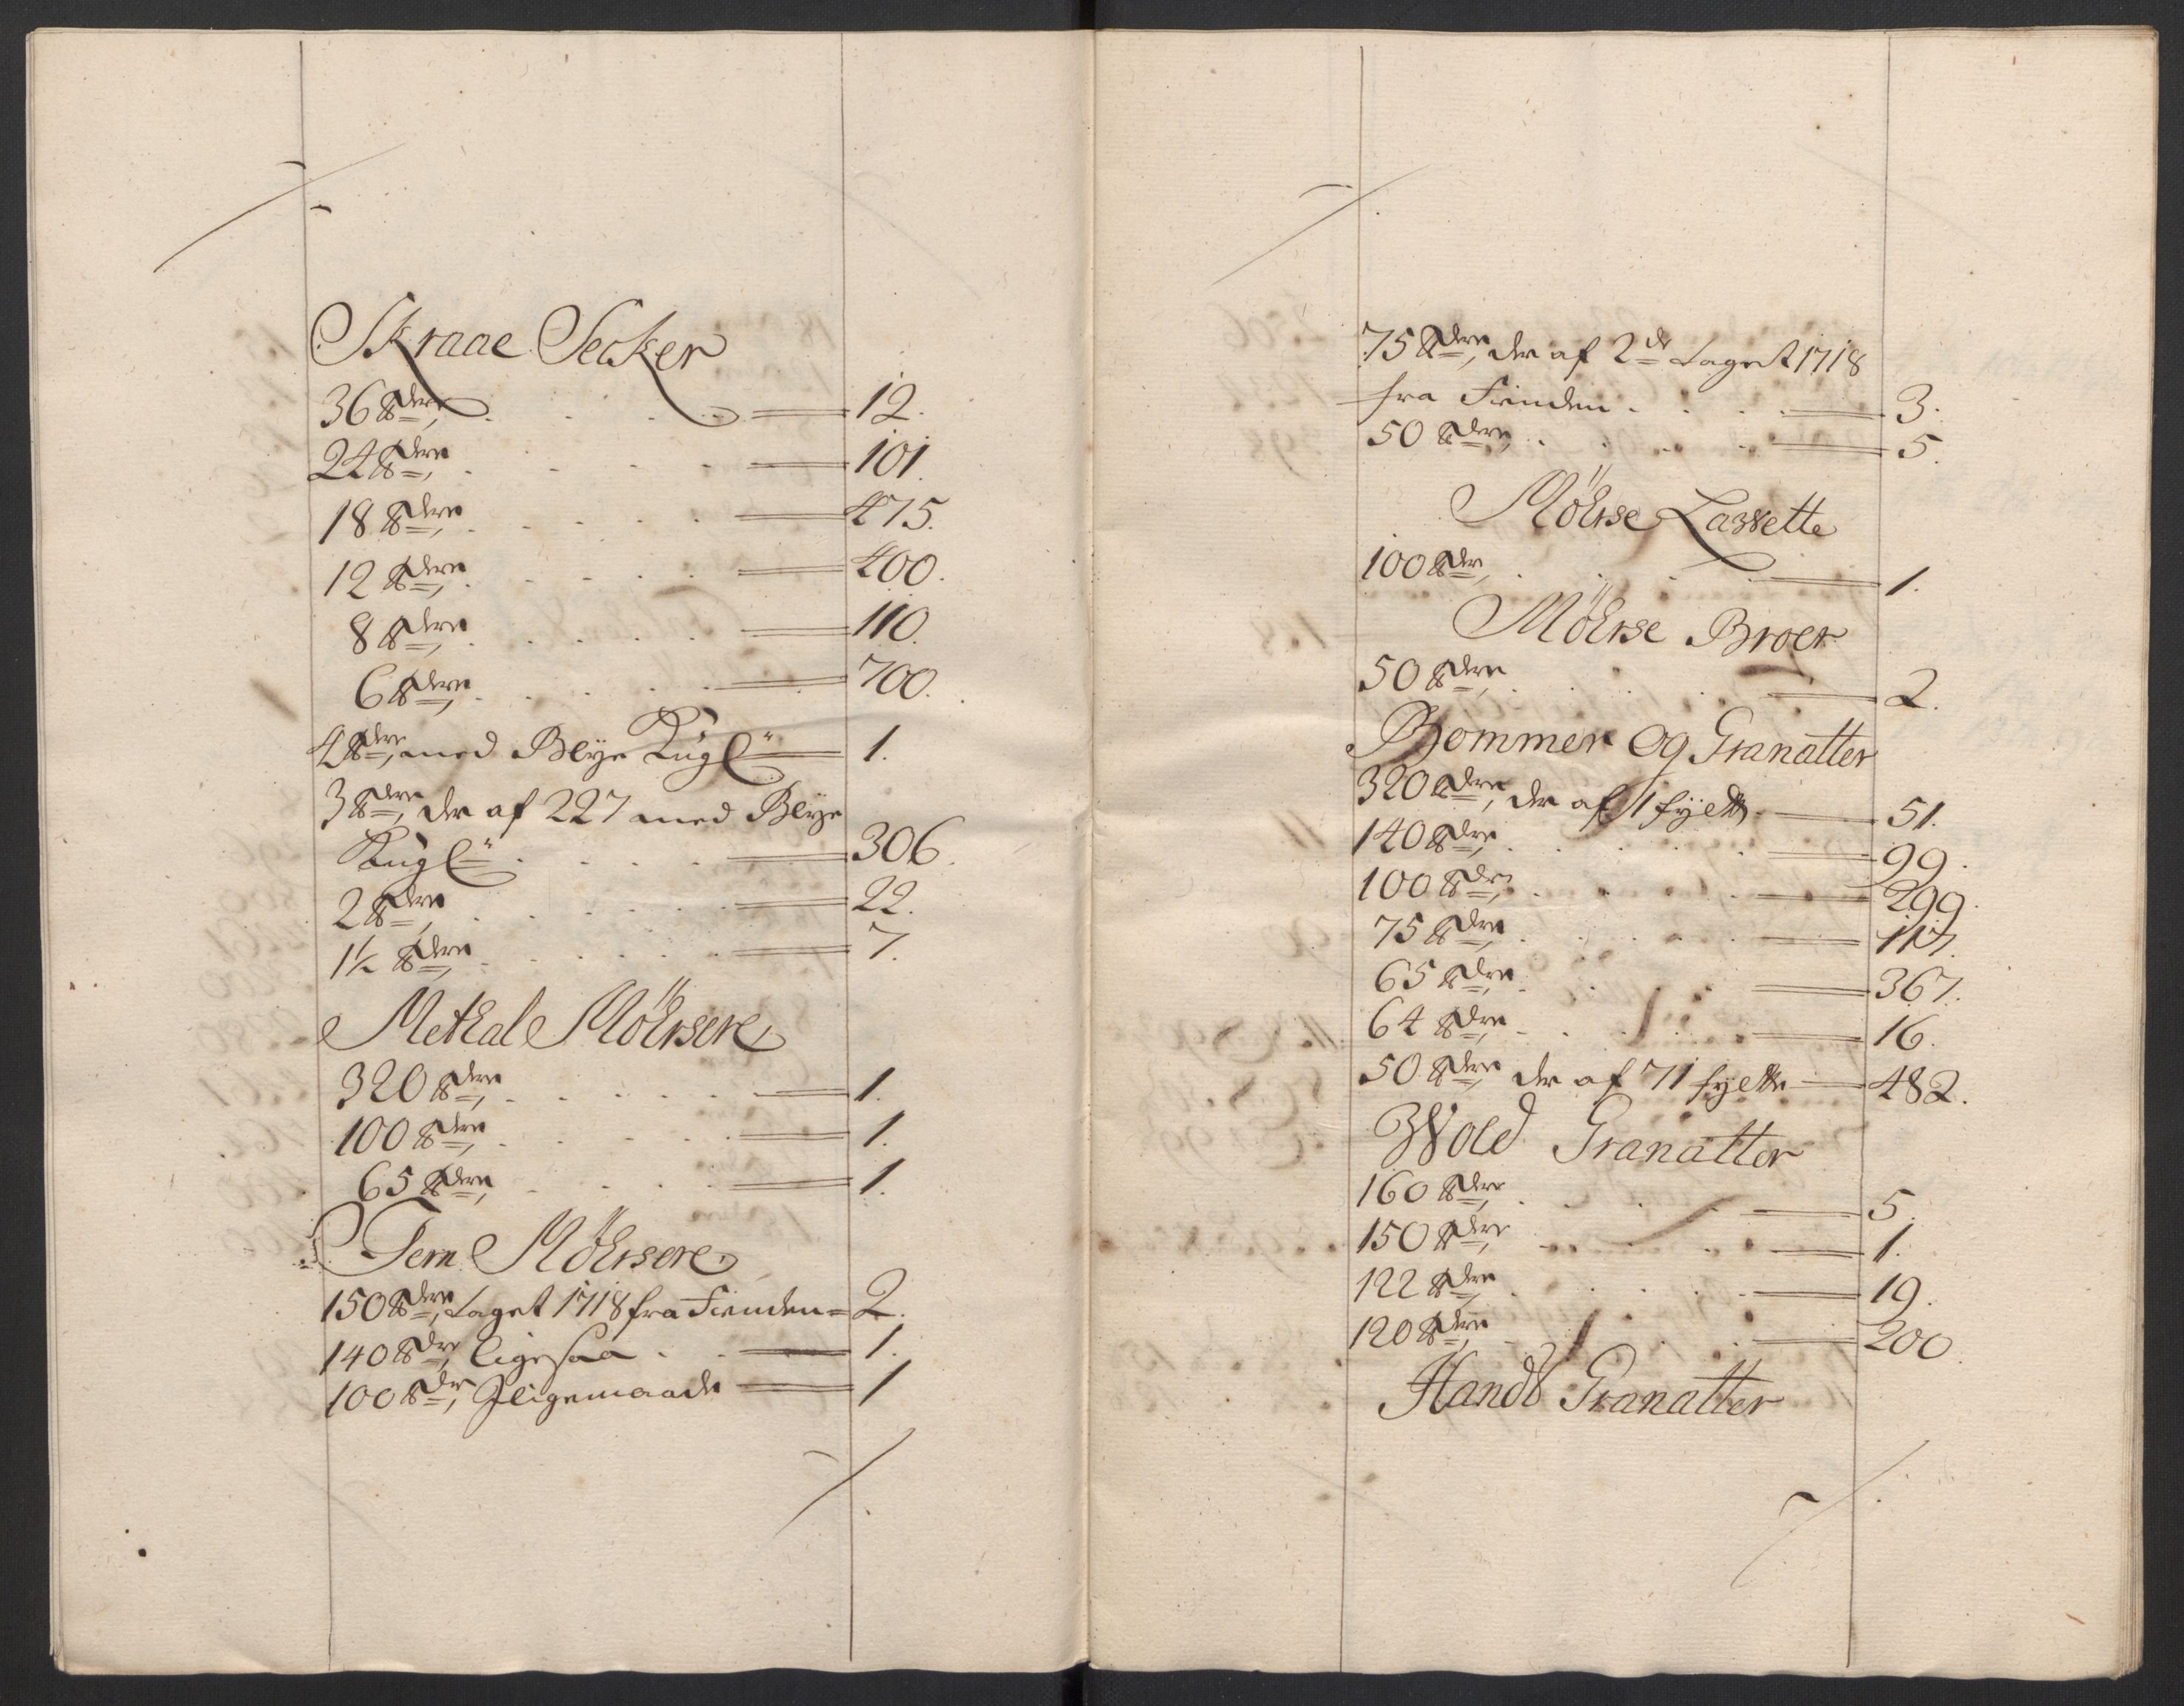 Skraae Secker
36 ℔dere, . . . . 12.
24 ℔dere, . . . . 101.
18 ℔dere, . . . . 475.
12 ℔dere, . . . . 400.
8 ℔dere, . . . . 110.
6 ℔dere, . . . . 700.
4 ℔dere, med Blye Kugl" 1.
3 ℔dere, der af 227 med Blye
Kugl" . . . . 306.
2 ℔dere, . . . . 22.
1½ ℔dere, . . . . 7.
Metal Mörsere
320 ℔dere, . . . . 1.
100 ℔dere, . . . . 1.
65 ℔dere, . . . . 1.
Jern Mörsere
150 ℔dere, taget 1718 fra Fienden = 2.
140 ℔dr, ligesaa . . 1.
100 ℔dr, Iligemaade 1
75 ℔dere, der af 2de taget 1718
fra Fienden . . . . 3.
50 ℔dere, . . . . 5.
Mörse Lavette
100 ℔der, . . . . 1.
Mörse Broer
50 ℔dere, . . . . 2.
Bommer Og Granatter
320 ℔dere, der af 1 fyelt 51.
140 ℔dere, . . . . 99.
100 ℔dr, . . . . 299.
75 ℔dere, . . . . 117.
65 ℔dere, . . . . 367.
64 ℔dere, . . . . 16.
50 ℔dere, der af 71 fyelte 482.
Wold Granatter
160 ℔dere, . . . . 5.
150 ℔dere, . . . . 1.
122 ℔dere, . . . . 19.
120 ℔dere, . . . . 200.
Handt Granatter